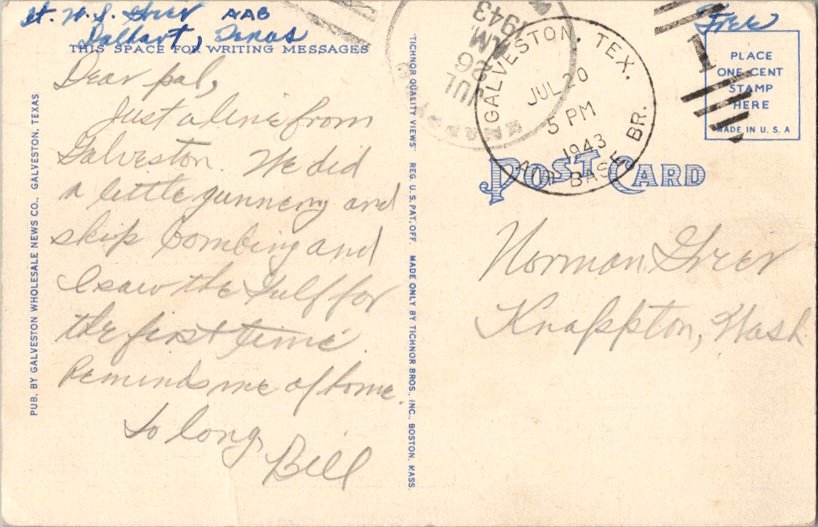 Lt. W. S. Greer AAB
Dalhart, Texas
THIS SPACE FOR WRITING MESSAGES
Dear pal,
Just a line from
Galveston. We did
a little gunnery and
skip bombing and
I saw the Gulf for
the first time.
Reminds me of home.
So long,
Bill
PUB. BY GALVESTON WHOLESALE NEWS CO., GALVESTON, TEXAS
"TICHNOR QUALITY VIEWS" REG. U. S. PAT. OFF. MADE ONLY BY TICHNOR BROS., INC., BOSTON, MASS.
JUL
26
AM
1943
GALVESTON, TEX.
JUL 20
5 PM
1943
AIR BASE BR.
1
Free
PLACE
ONE CENT
STAMP
HERE
MADE IN U. S. A
POST CARD
Norman Greer
Knappton, Wash